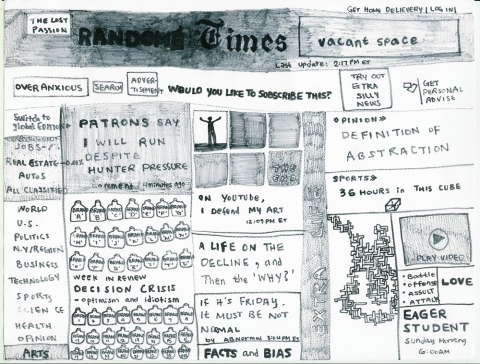 THE LOST
PASSION
RANDOME Times
GET HOME DELIEVERY | LOG IN |
vacant space
Last update: 2:17 PM ET
OVER ANXIOUS
SEARCH
ADVER-
TISEMENT
WOULD YOU LIKE TO SUBSCRIBE THIS?
TRY OUT
EXTRA
SILLY
NEWS
GET
PERSONAL
ADVISE
Switch to
global Edition
JOBS
REAL ESTATE
AUTOS
ALL CLASSIFIED
WORLD
U.S.
POLITICS
N.Y/REGION
BUSINESS
TECHNOLOGY
SPORTS
SCIENCE
HEALTH
OPINION
ARTS
PATRONS SAY
I WILL RUN
DESPITE
HUNTER PRESSURE
Comment 4 minutes ago
WEEK IN REVIEW
DECISION CRISIS
- optimism and idiotism
THE
ON YOUTUBE,
I DEFEND MY ART
12:09 PM ET
A LIFE ON THE
DECLINE, and
Then the 'WHY?'
IF IT'S FRIDAY.
IT MUST BE NOT
NORMAL
FACTS and BIAS
EXTRA LIFE
OPINION»
DEFINITION OF
ABSTRACTION
SPORTS»
36 HOURS in THIS CUBE
PLAY VIDEO
• Battle
• offense
• assault
• ATTACK
LOVE
EAGER
STUDENT
Sunday Morning
6:00AM